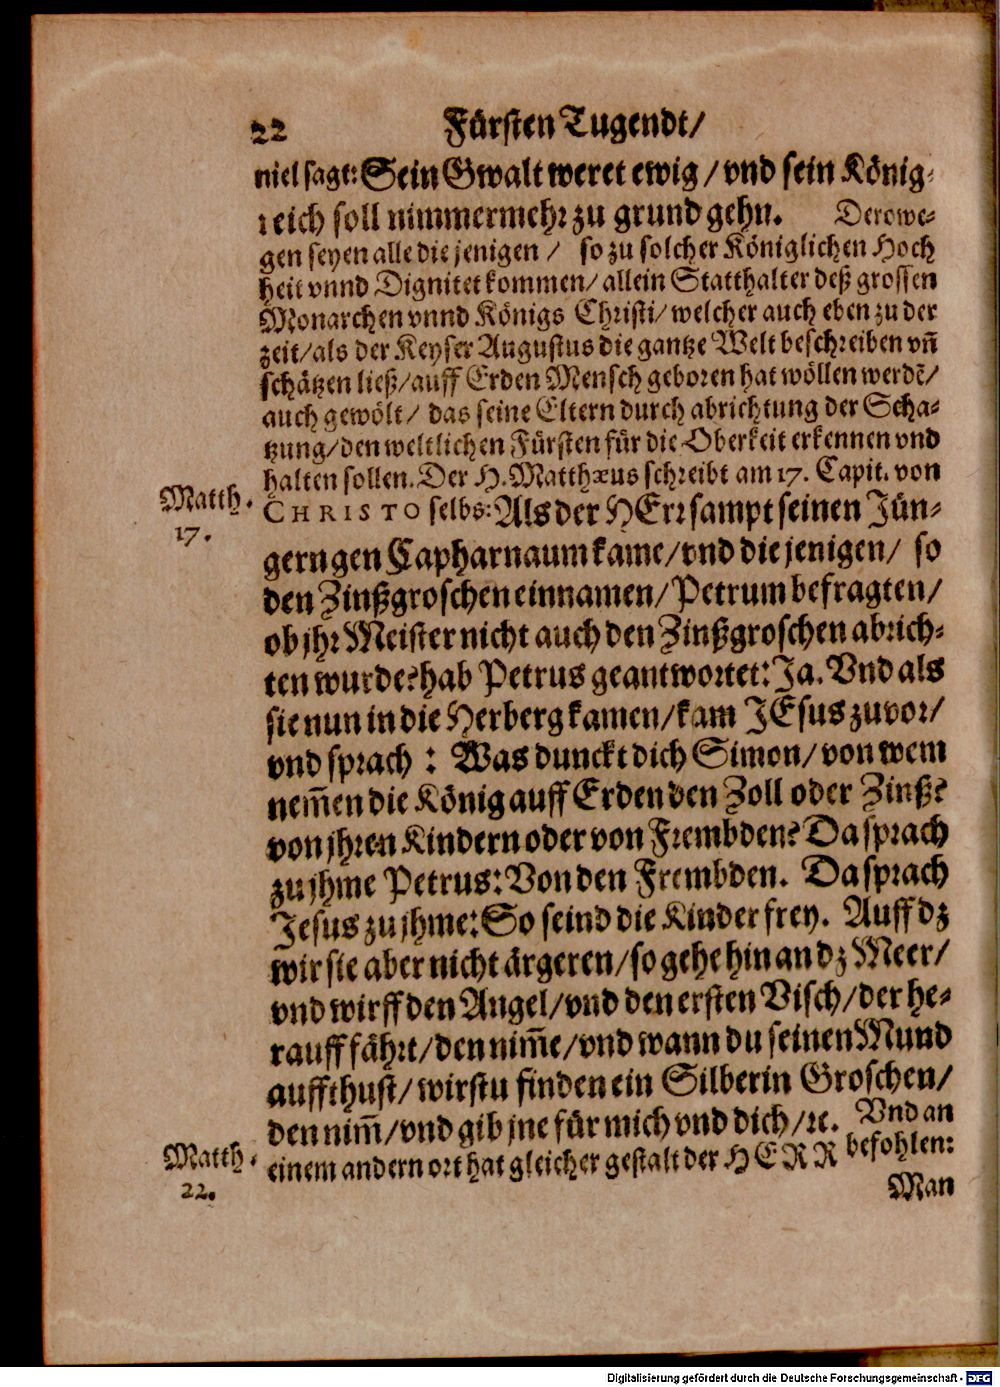 22 Fürsten Tugendt/
niel sagt: Sein Gwalt weret ewig / vnd sein König-
reich soll nimmermehr zu grund gehn. Derowe-
gen seyen alle die jenigen / so zu solcher Königlichen Hoch
heit vnnd Dignitet kommen/ allein Statthalter deß grossen
Monarchen vnnd Königs Christi/ welcher auch eben zu der
zeit/als der Keyser Augustus die gantze Welt beschreiben vñ
schätzen ließ/auff Erden Mensch geboren hat wöllen werdē/
auch gewölt/ das seine Eltern durch abrichtung der Scha-
tzung/den weltlichen Fürsten für die Oberkeit erkennen vnd
halten sollen. Der H. Matthæus schreibt am 17. Capit. von
Matth.
17.
CHRISTO selbs: Als der HErr sampt seinen Jün-
gern gen Capharnaum kame/vnd die jenigen/ so
den Zinßgroschen einnamen/Petrum befragten/
ob jhr Meister nicht auch den Zinßgroschen abrich-
ten wurde? hab Petrus geantwortet: Ja. Vnd als
sie nun in die Herberg kamen/kam JEsus zuvor/
vnd sprach : Was dunckt dich Simon/ von wem
nem̃en die König auff Erden den Zoll oder Zinß?
von jhren Kindern oder von Frembden? Da sprach
zu jhme Petrus: Von den Frembden. Da sprach
Jesus zu jhme: So seind die Kinder frey. Auff dz
wir sie aber nicht ärgeren/so gehe hin an dz Meer/
vnd wirff den Angel/vnd den ersten Visch/der he-
rauff fährt/den nim̃e/vnd wann du seinen Mund
auffthust/wirstu finden ein Silberin Groschen/
den nim̃/vnd gib jne für mich vnd dich/ꝛc. Vnd an
Matth.
22.
einem andern ort hat gleicher gestalt der HERR befohlen:
Man
Digitalisierung gefördert durch die Deutsche Forschungsgemeinschaft - DFG